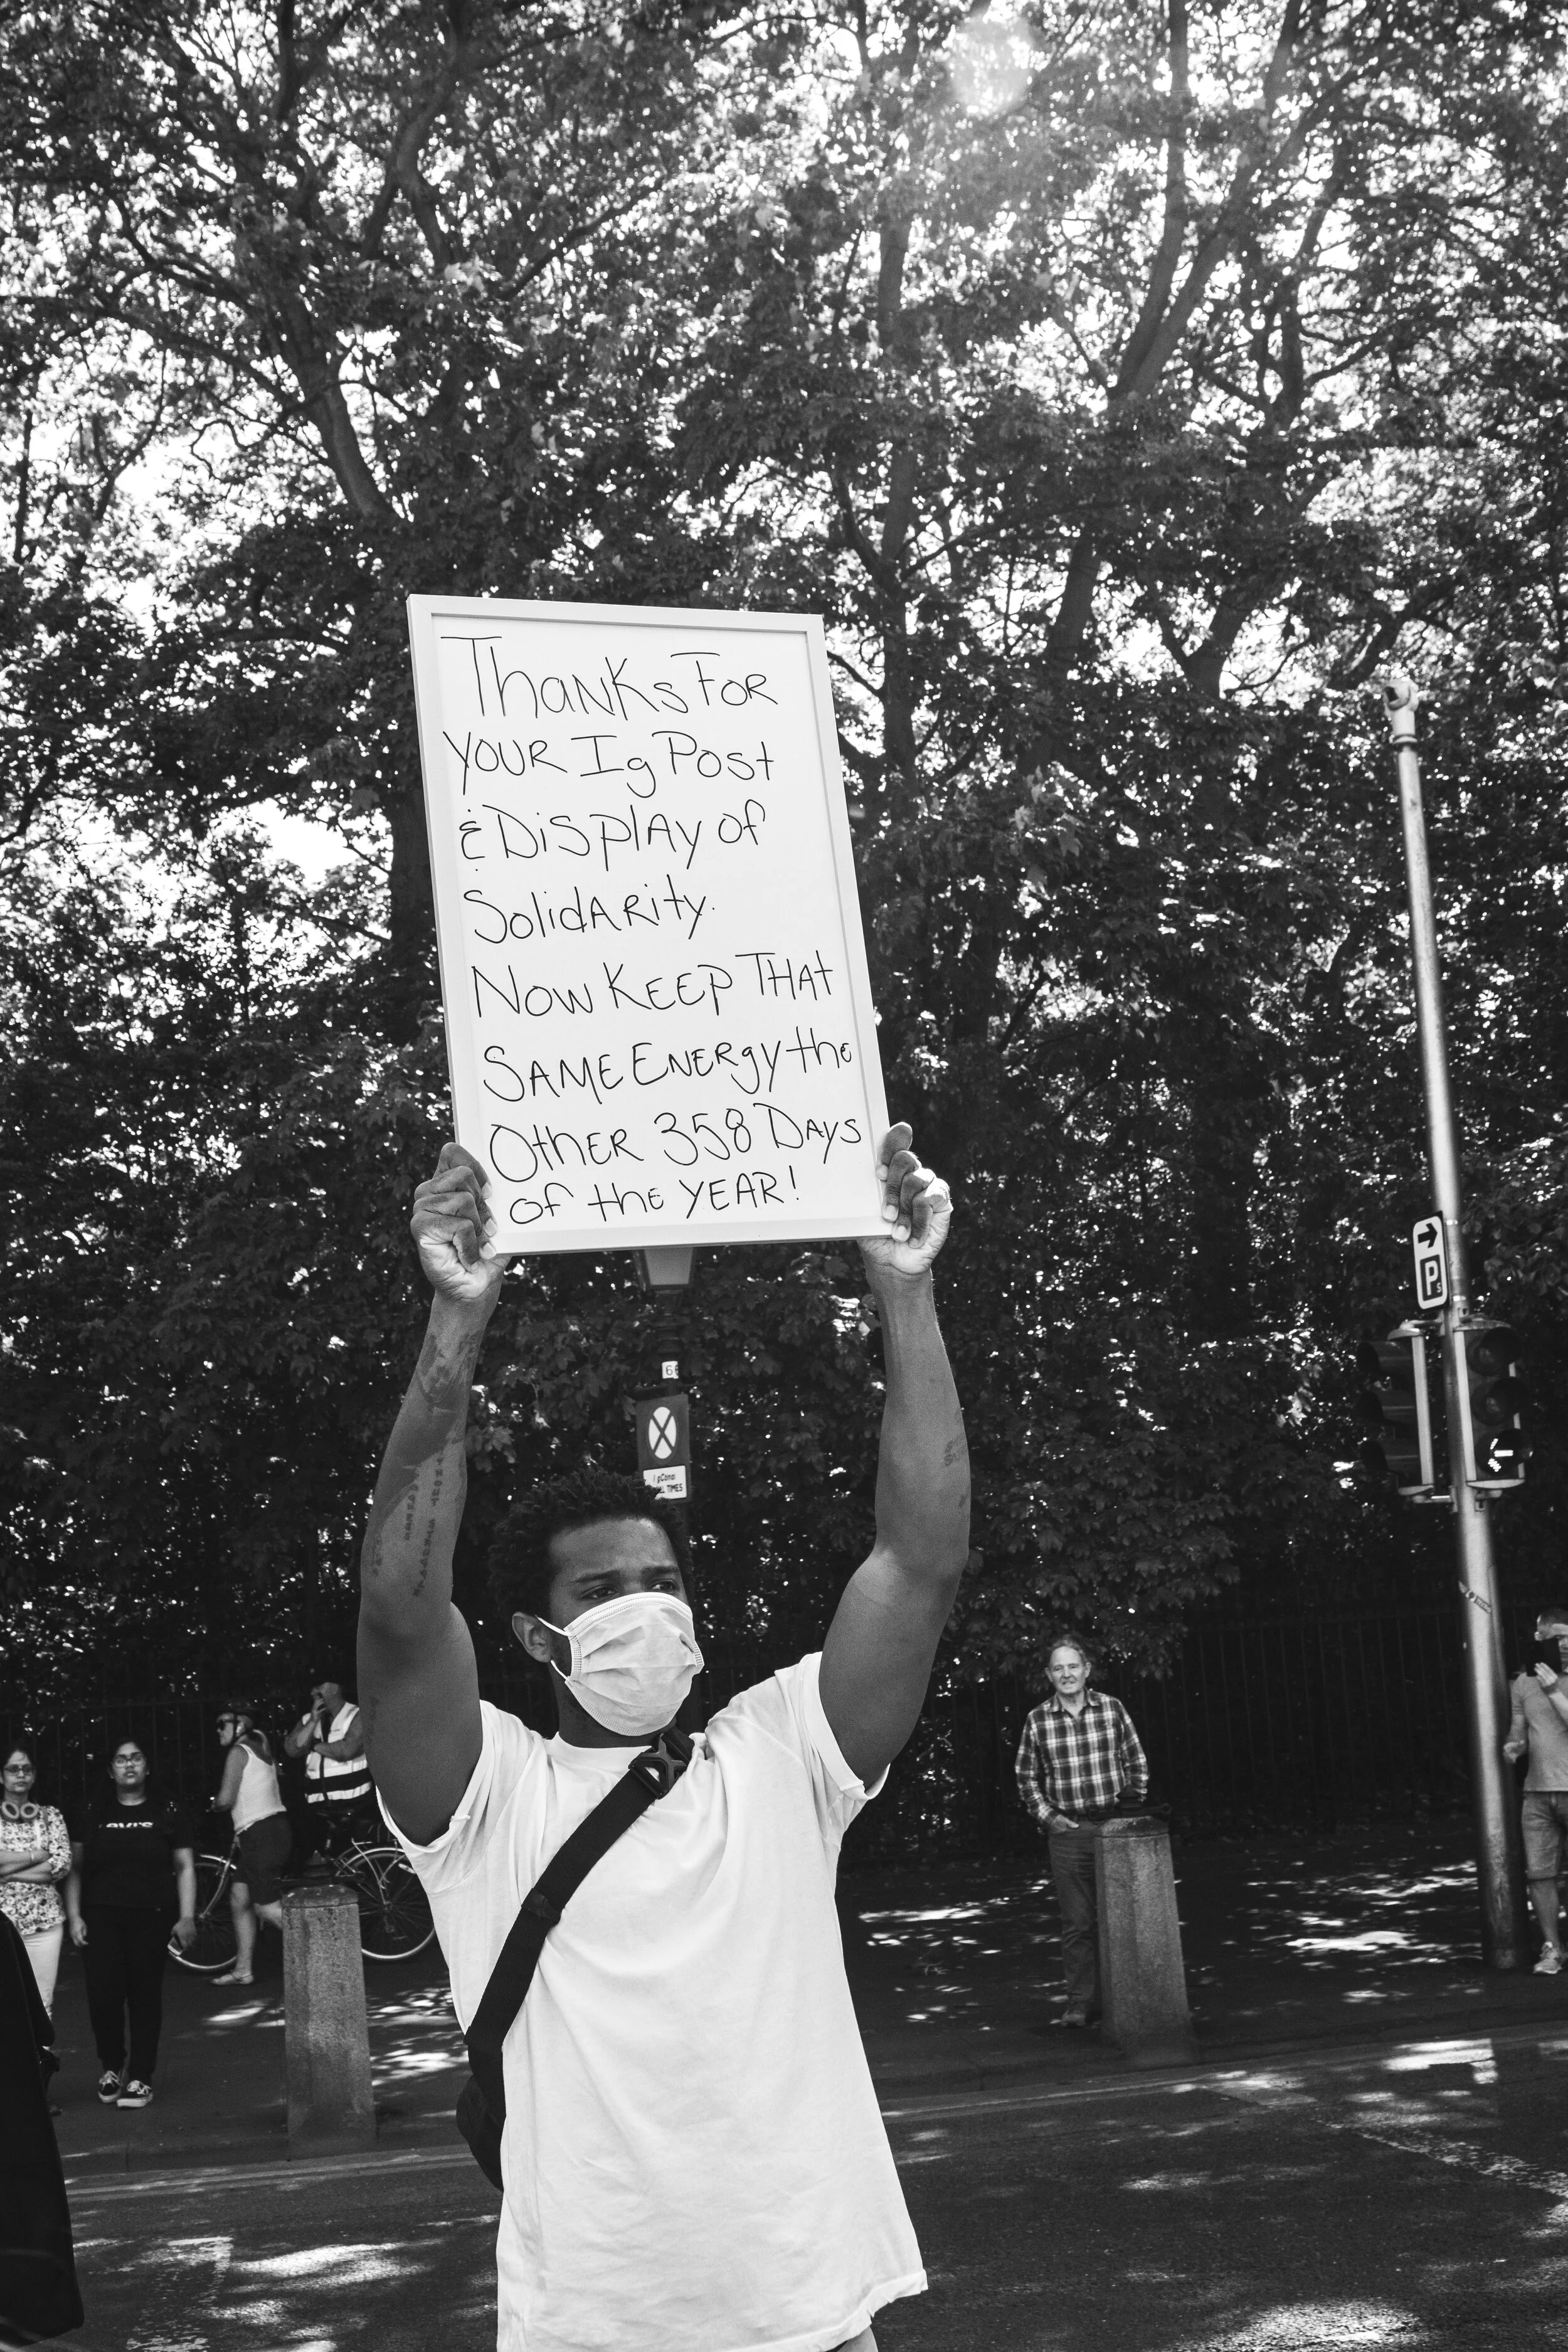 ThanKs FoR
YOUR Ig Post
& DisplAy of
SolidARity.
Now KEEP THAt
SAME ENERgy the
OthER 358 DAys
of the YEAR!
P